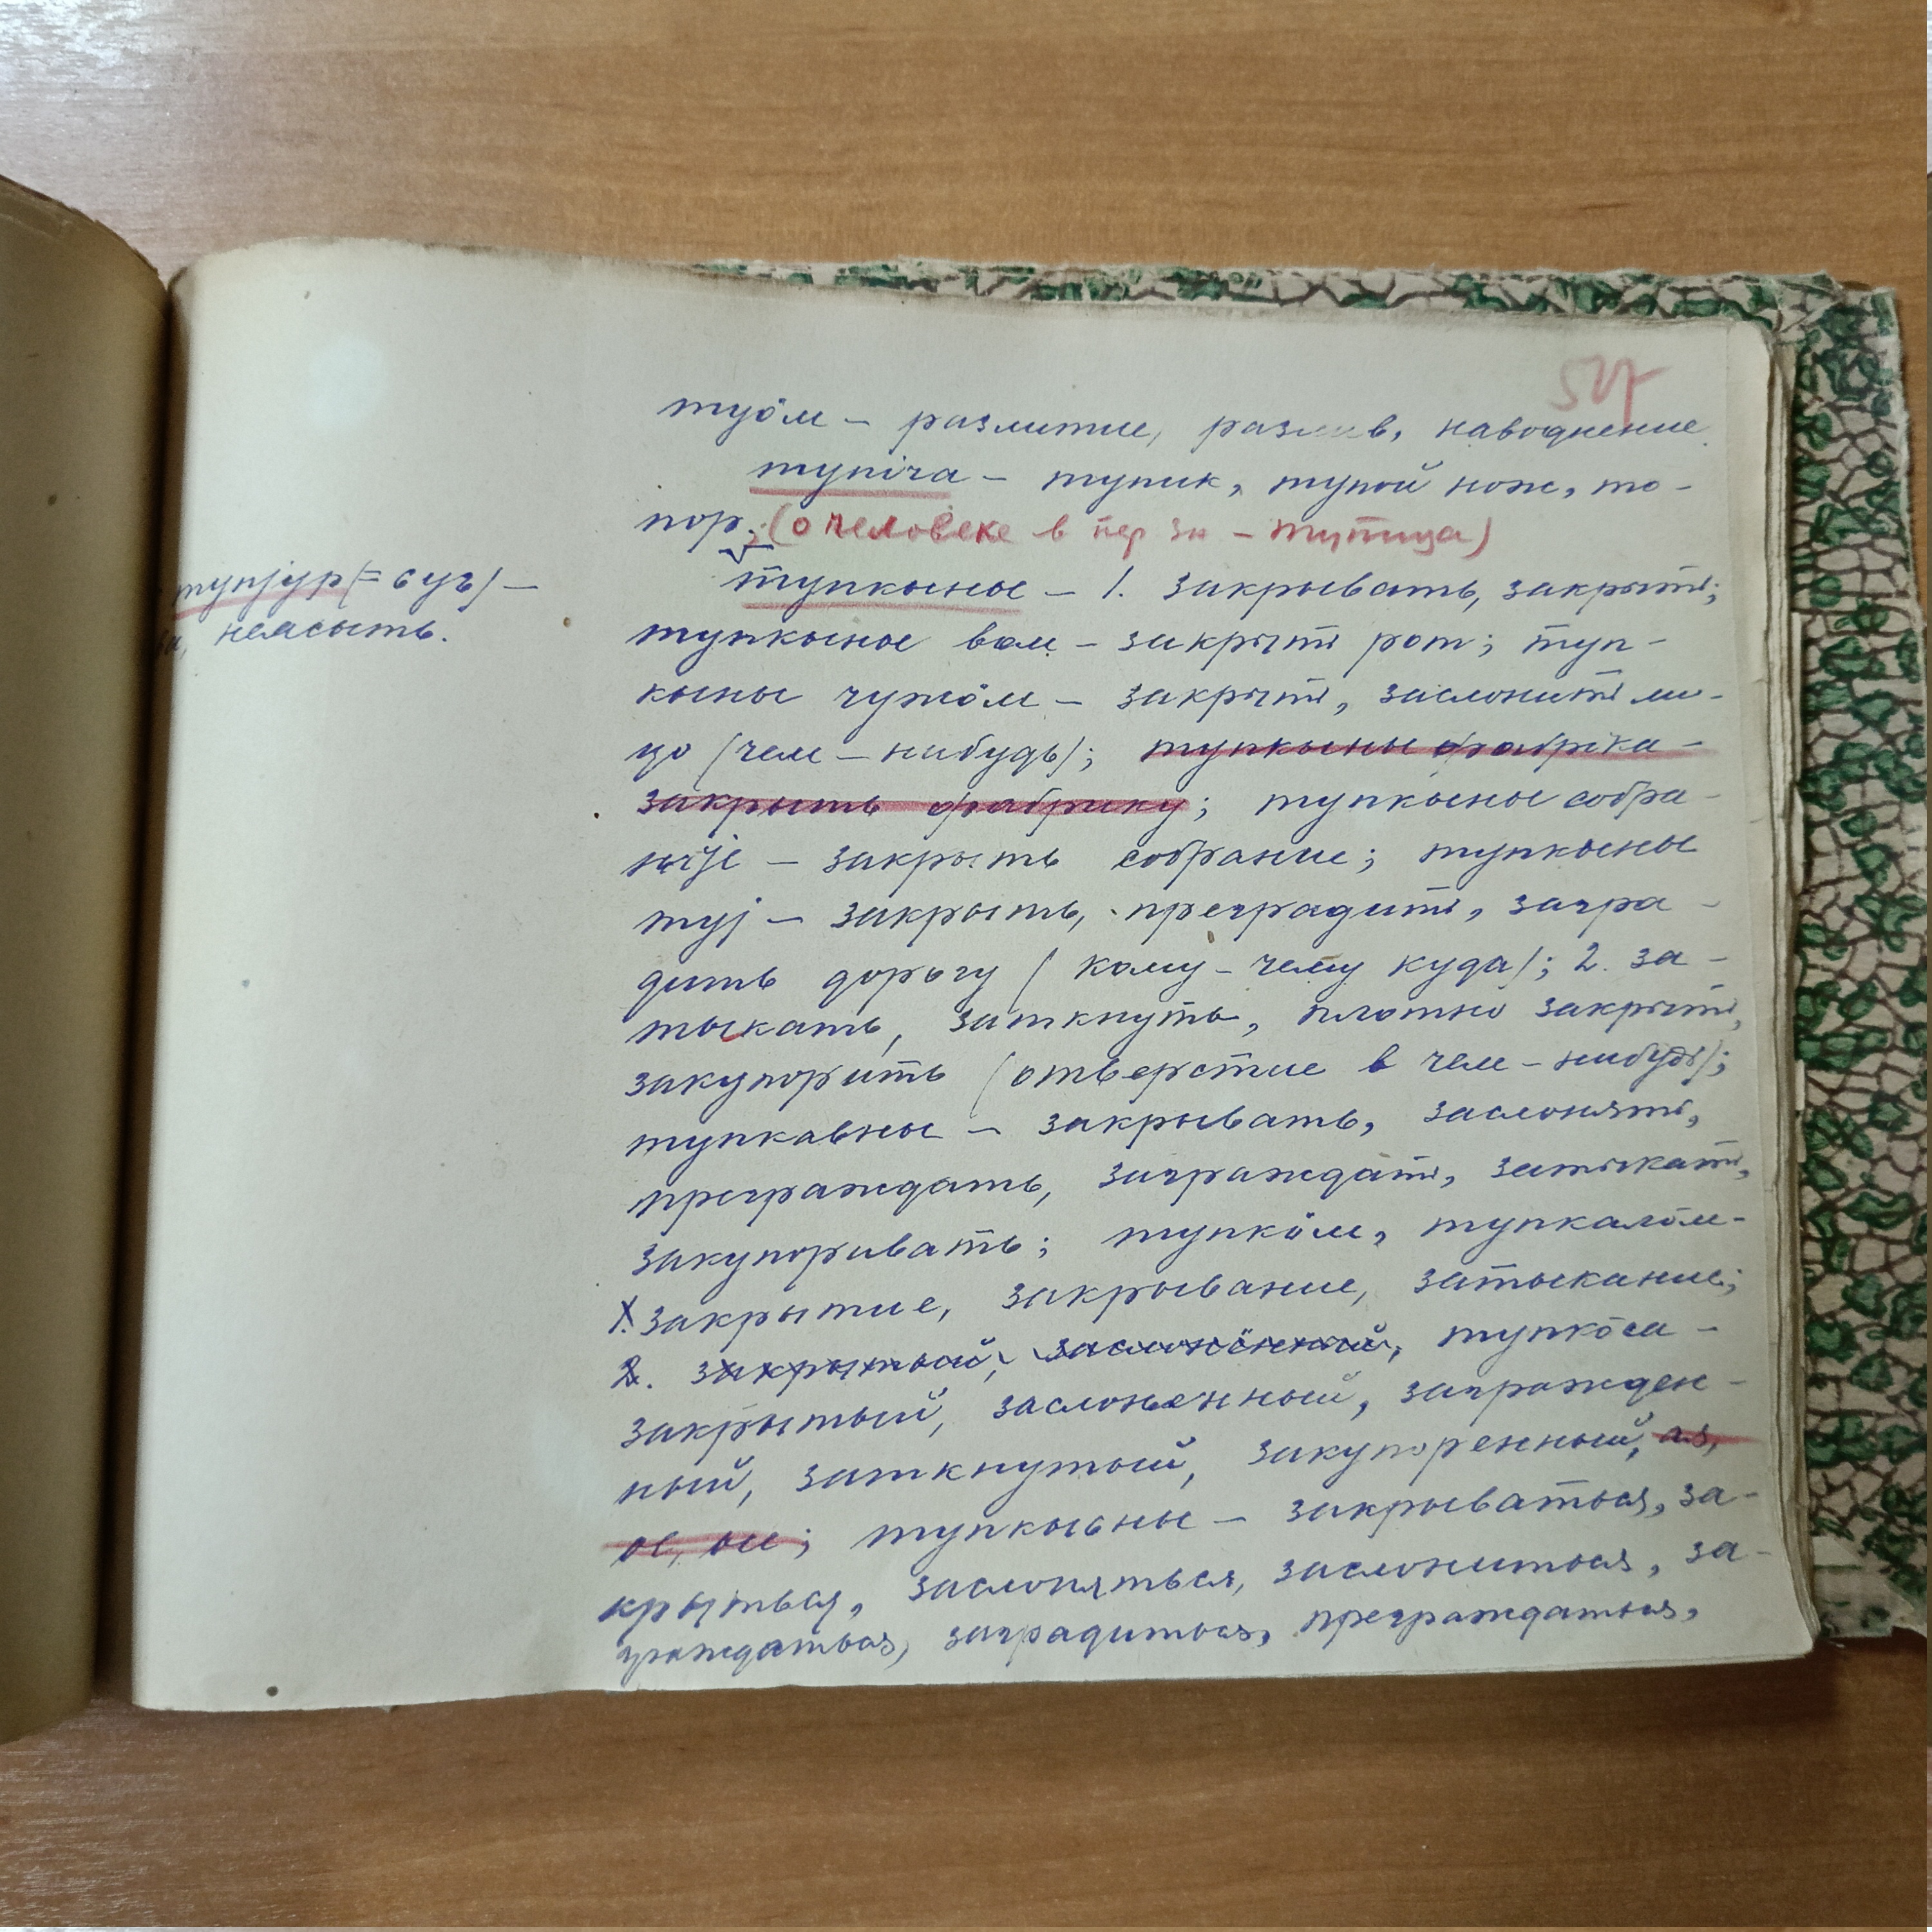 527
туӧм – разлитие, разлив, наводнение
тупіча – тупик, тупой нож, то-
пор; (о человеке в пер зн – тупица)
тупјур (= суз) –
неясыть.
тупкыны – 1. закрывать, закрыть;
тупкыны вом – закрыть рот; туп-
кыны чужӧм – закрыть, заслонить ли-
цо (чем-нибудь); тупкыны фабріка –
закрыть фабрику; тупкыны собра-
ње – закрыть собрание; тупкыны
туј – закрыть, преградить, загра-
дить дорогу (кому-чему куда); 2. за-
тыкать, заткнуть, плотно закрыть,
закупорить (отверстие в чем-нибудь);
тупкавны – закрывать, заслонять,
преграждать, заграждать, затыкать,
закупоривать; тупкӧм, тупкалӧм –
1. закрытие, закрывание, затыкание;
2. закрытый, заслонённый, тупкӧса –
закрытый, заслоненный, загражден-
ный, заткнутый, закупоренный, ая,
ое, ые; тупкысьны – закрываться, за-
крыться, заслоняться, заслониться, за-
граждаться, заградиться, преграждаться,